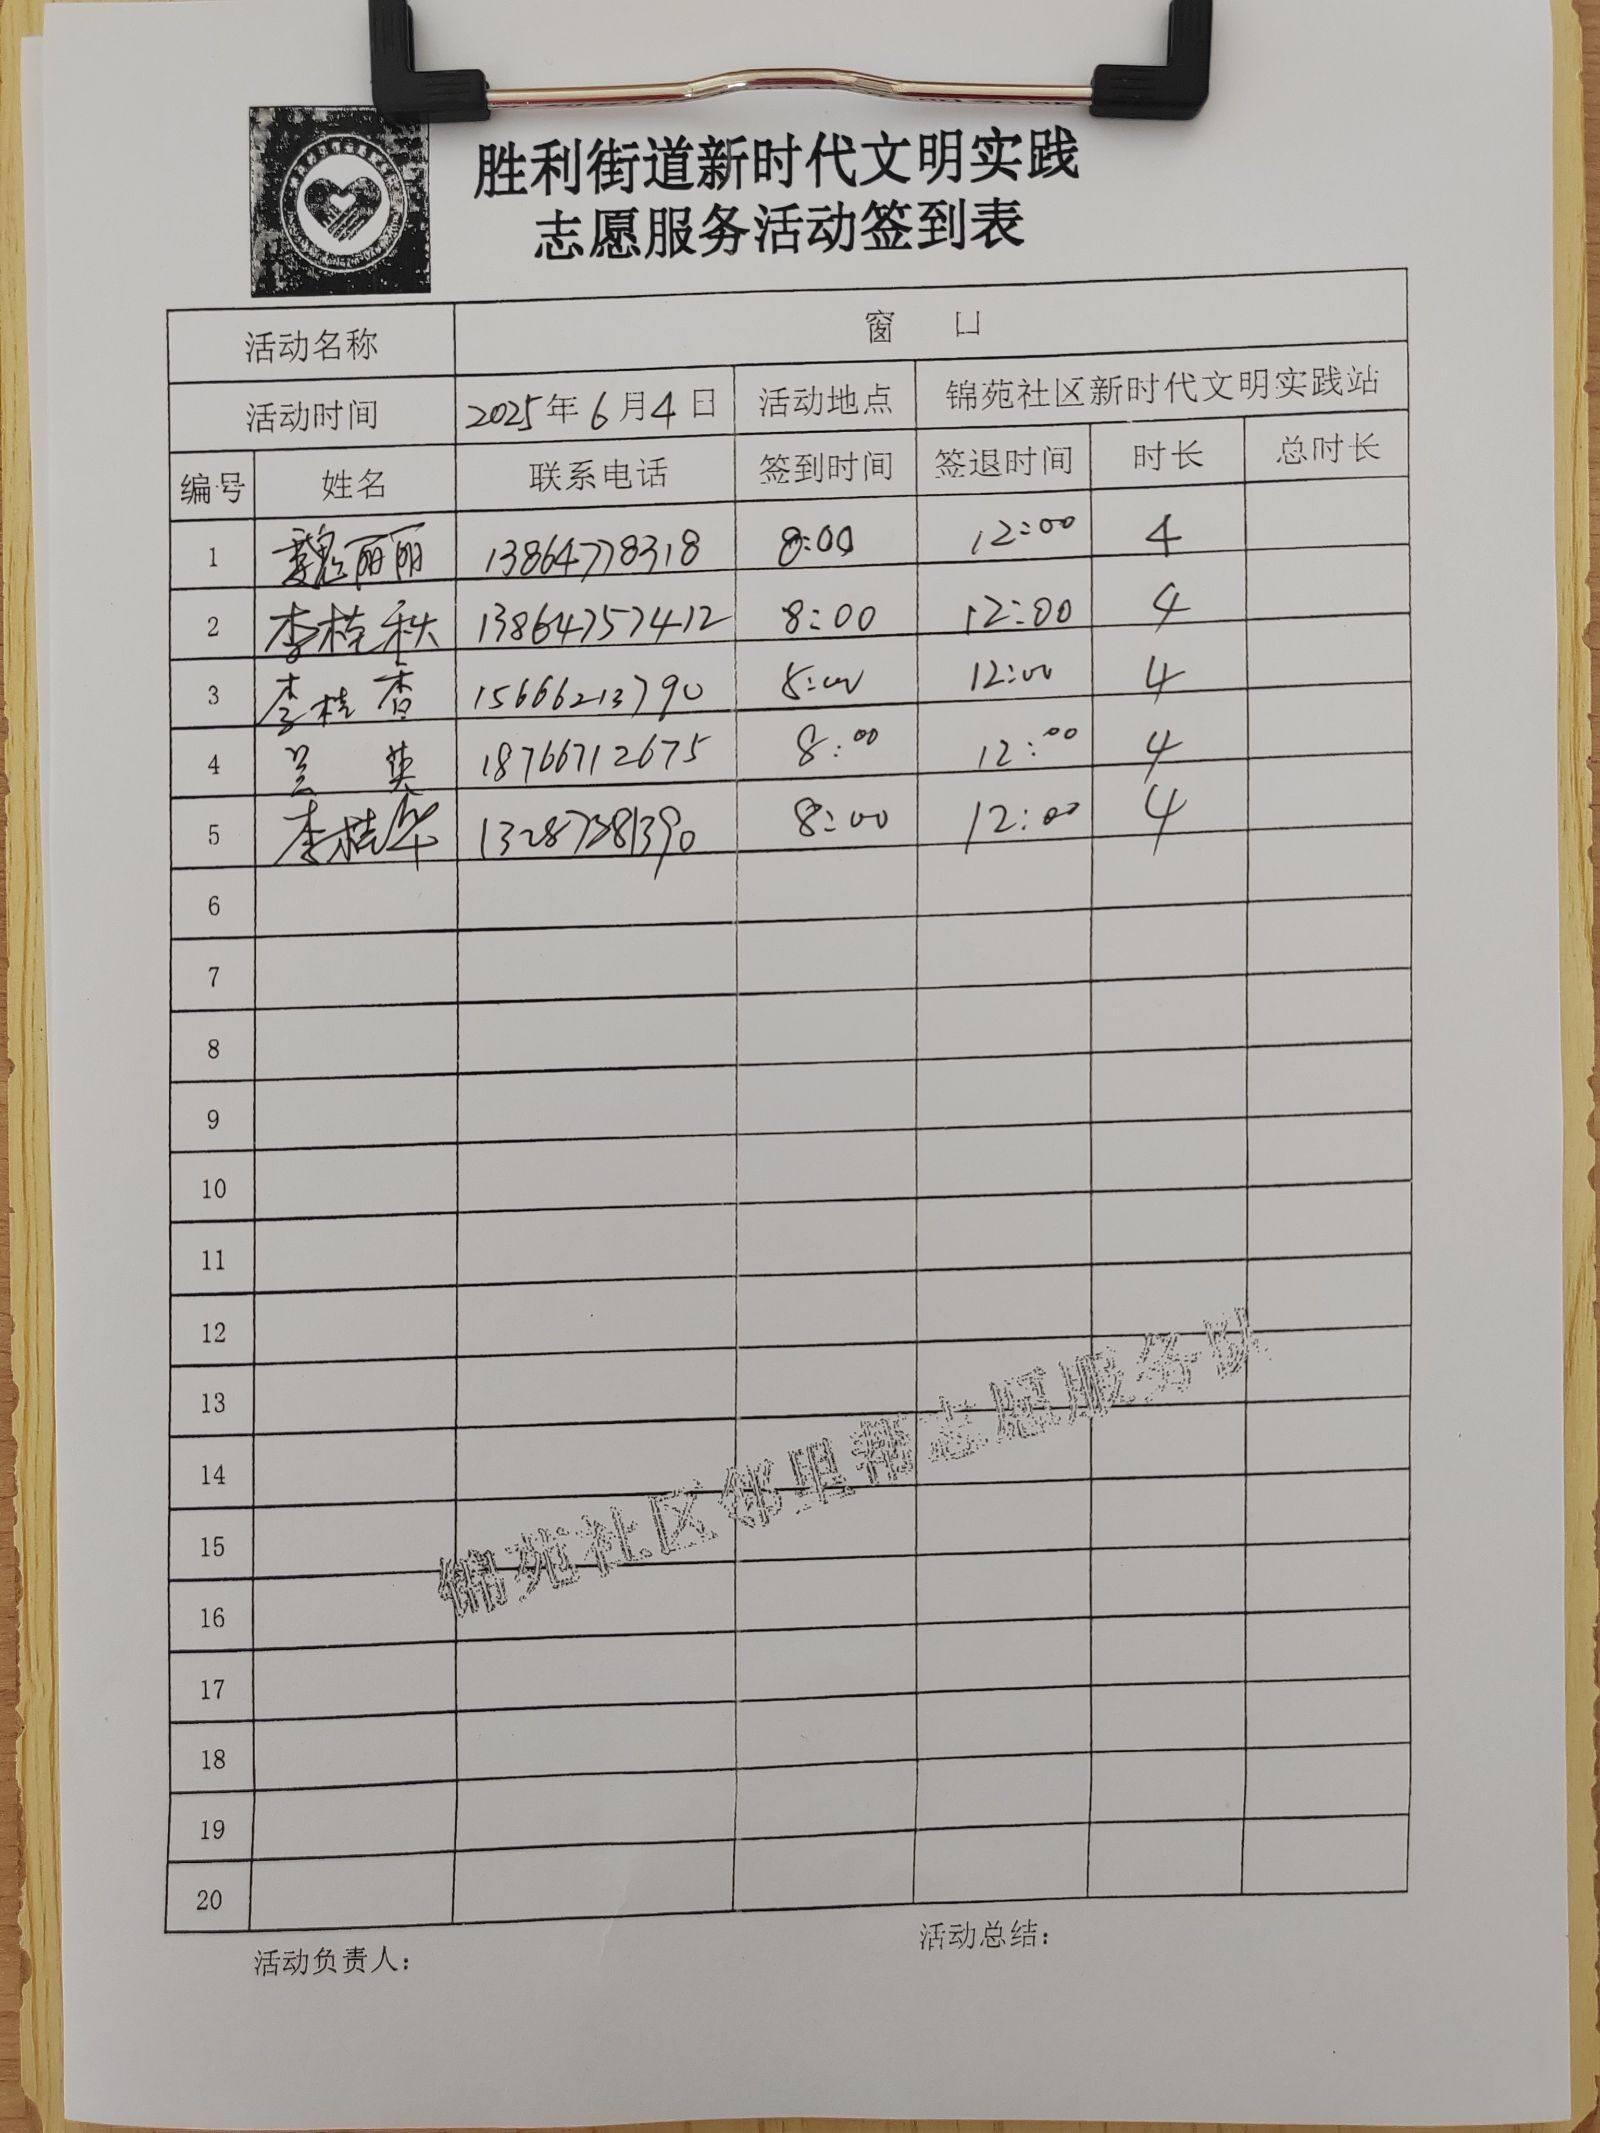 胜利街道新时代文明实践
志愿服务活动签到表
活动名称 窗 口
活动时间 2025年6月4日 活动地点 锦苑社区新时代文明实践站
编号 姓名 联系电话 签到时间 签退时间 时长 总时长
1 魏丽丽 13864778318 8:00 12:00 4
2 李桂秋 13864757412 8:00 12:00 4
3 李桂香 15666213790 8:00 12:00 4
4 英 18766712675 8:00 12:00 4
5 李桂华 13287381390 8:00 12:00 4
6
7
8
9
10
11
12
13
14
15
16
17
18
19
20
锦苑社区邻里帮志愿服务队
活动负责人： 活动总结：